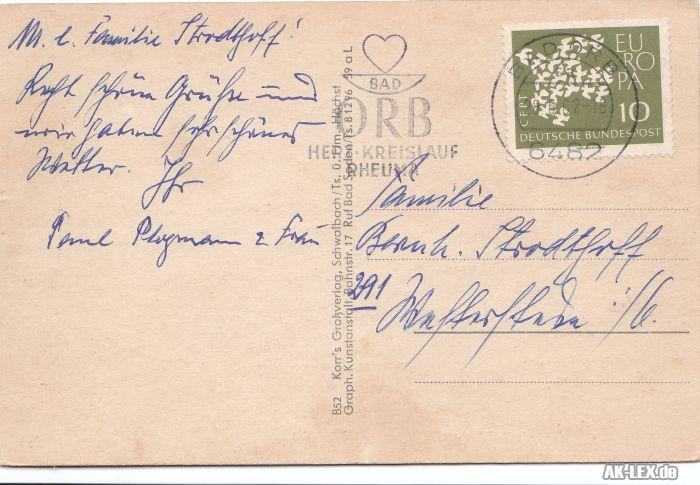 M. l. Familie Strodthoff!
Recht schöne Grüße und
wir haben sehr schönes
Wetter. Ihr
Paul Plogmann & Frau
B52 Karr's Großverlag, Schwalbach/Ts. ü. Ffm.-Höchst
Graph. Kunstanstalt Bahnstr. 17 Ruf Bad Soden/Ts. 81296 59 a L
BAD
ORB
HERZ·KREISLAUF
RHEUMA
BAD ORB
6482
EUROPA
CEPT
10
DEUTSCHE BUNDESPOST
Familie
Bernh. Strodthoff
291
Westerstede i/O.
AK-LEX.de